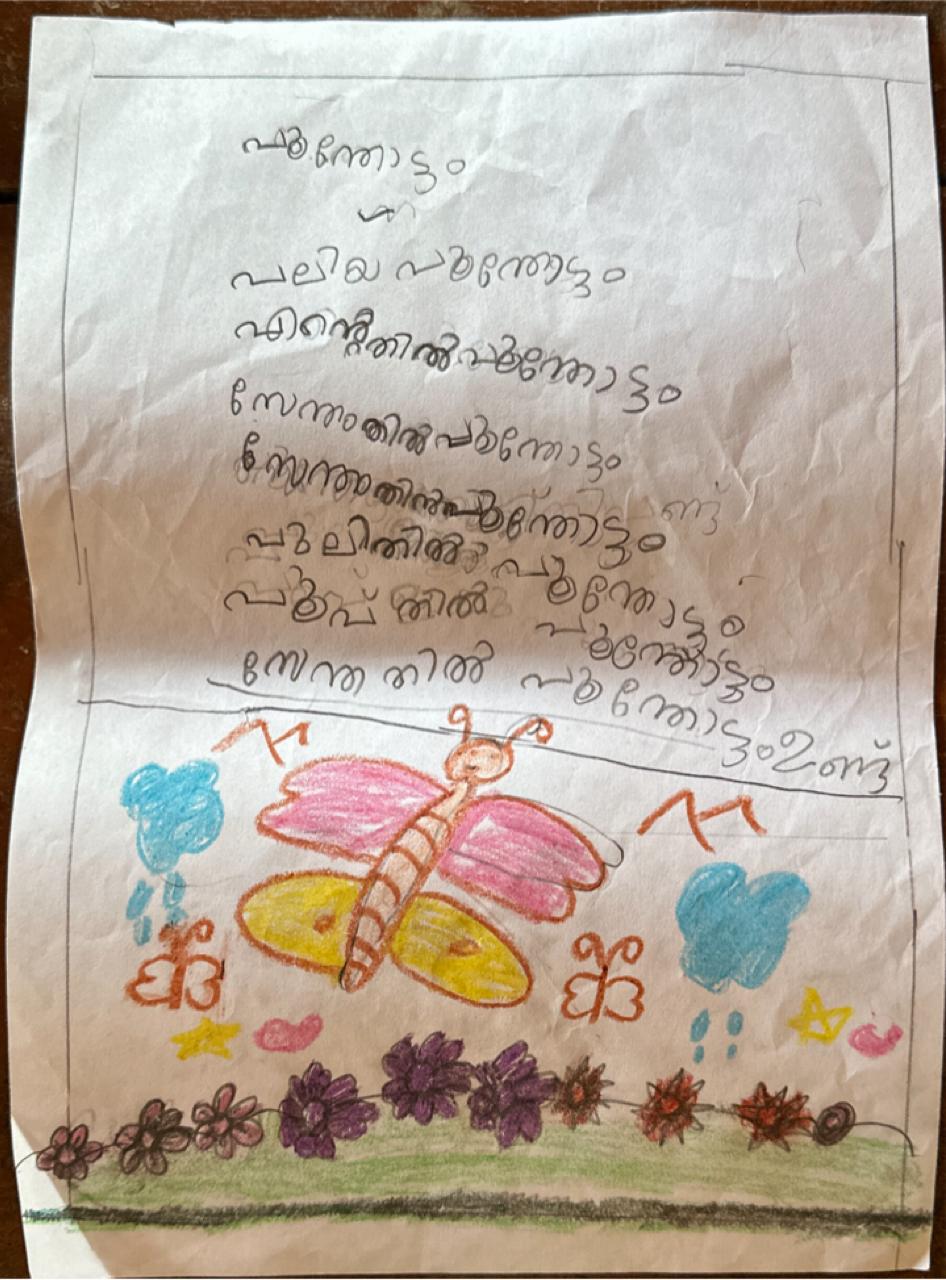 പൂന്തോട്ടം
പലിയ പൂന്തോട്ടം
എന്റെതിൽ പൂന്തോട്ടം
സേന്തംതിൽ പൂന്തോട്ടം
സേന്തംതിൽ പൂന്തോട്ടം
പുലിതിൽ പൂന്തോട്ടം
പൂപ് തിൽ പൂന്തോട്ടം
സേന്ത തിൽ പൂന്തോട്ടംഉണ്ട്